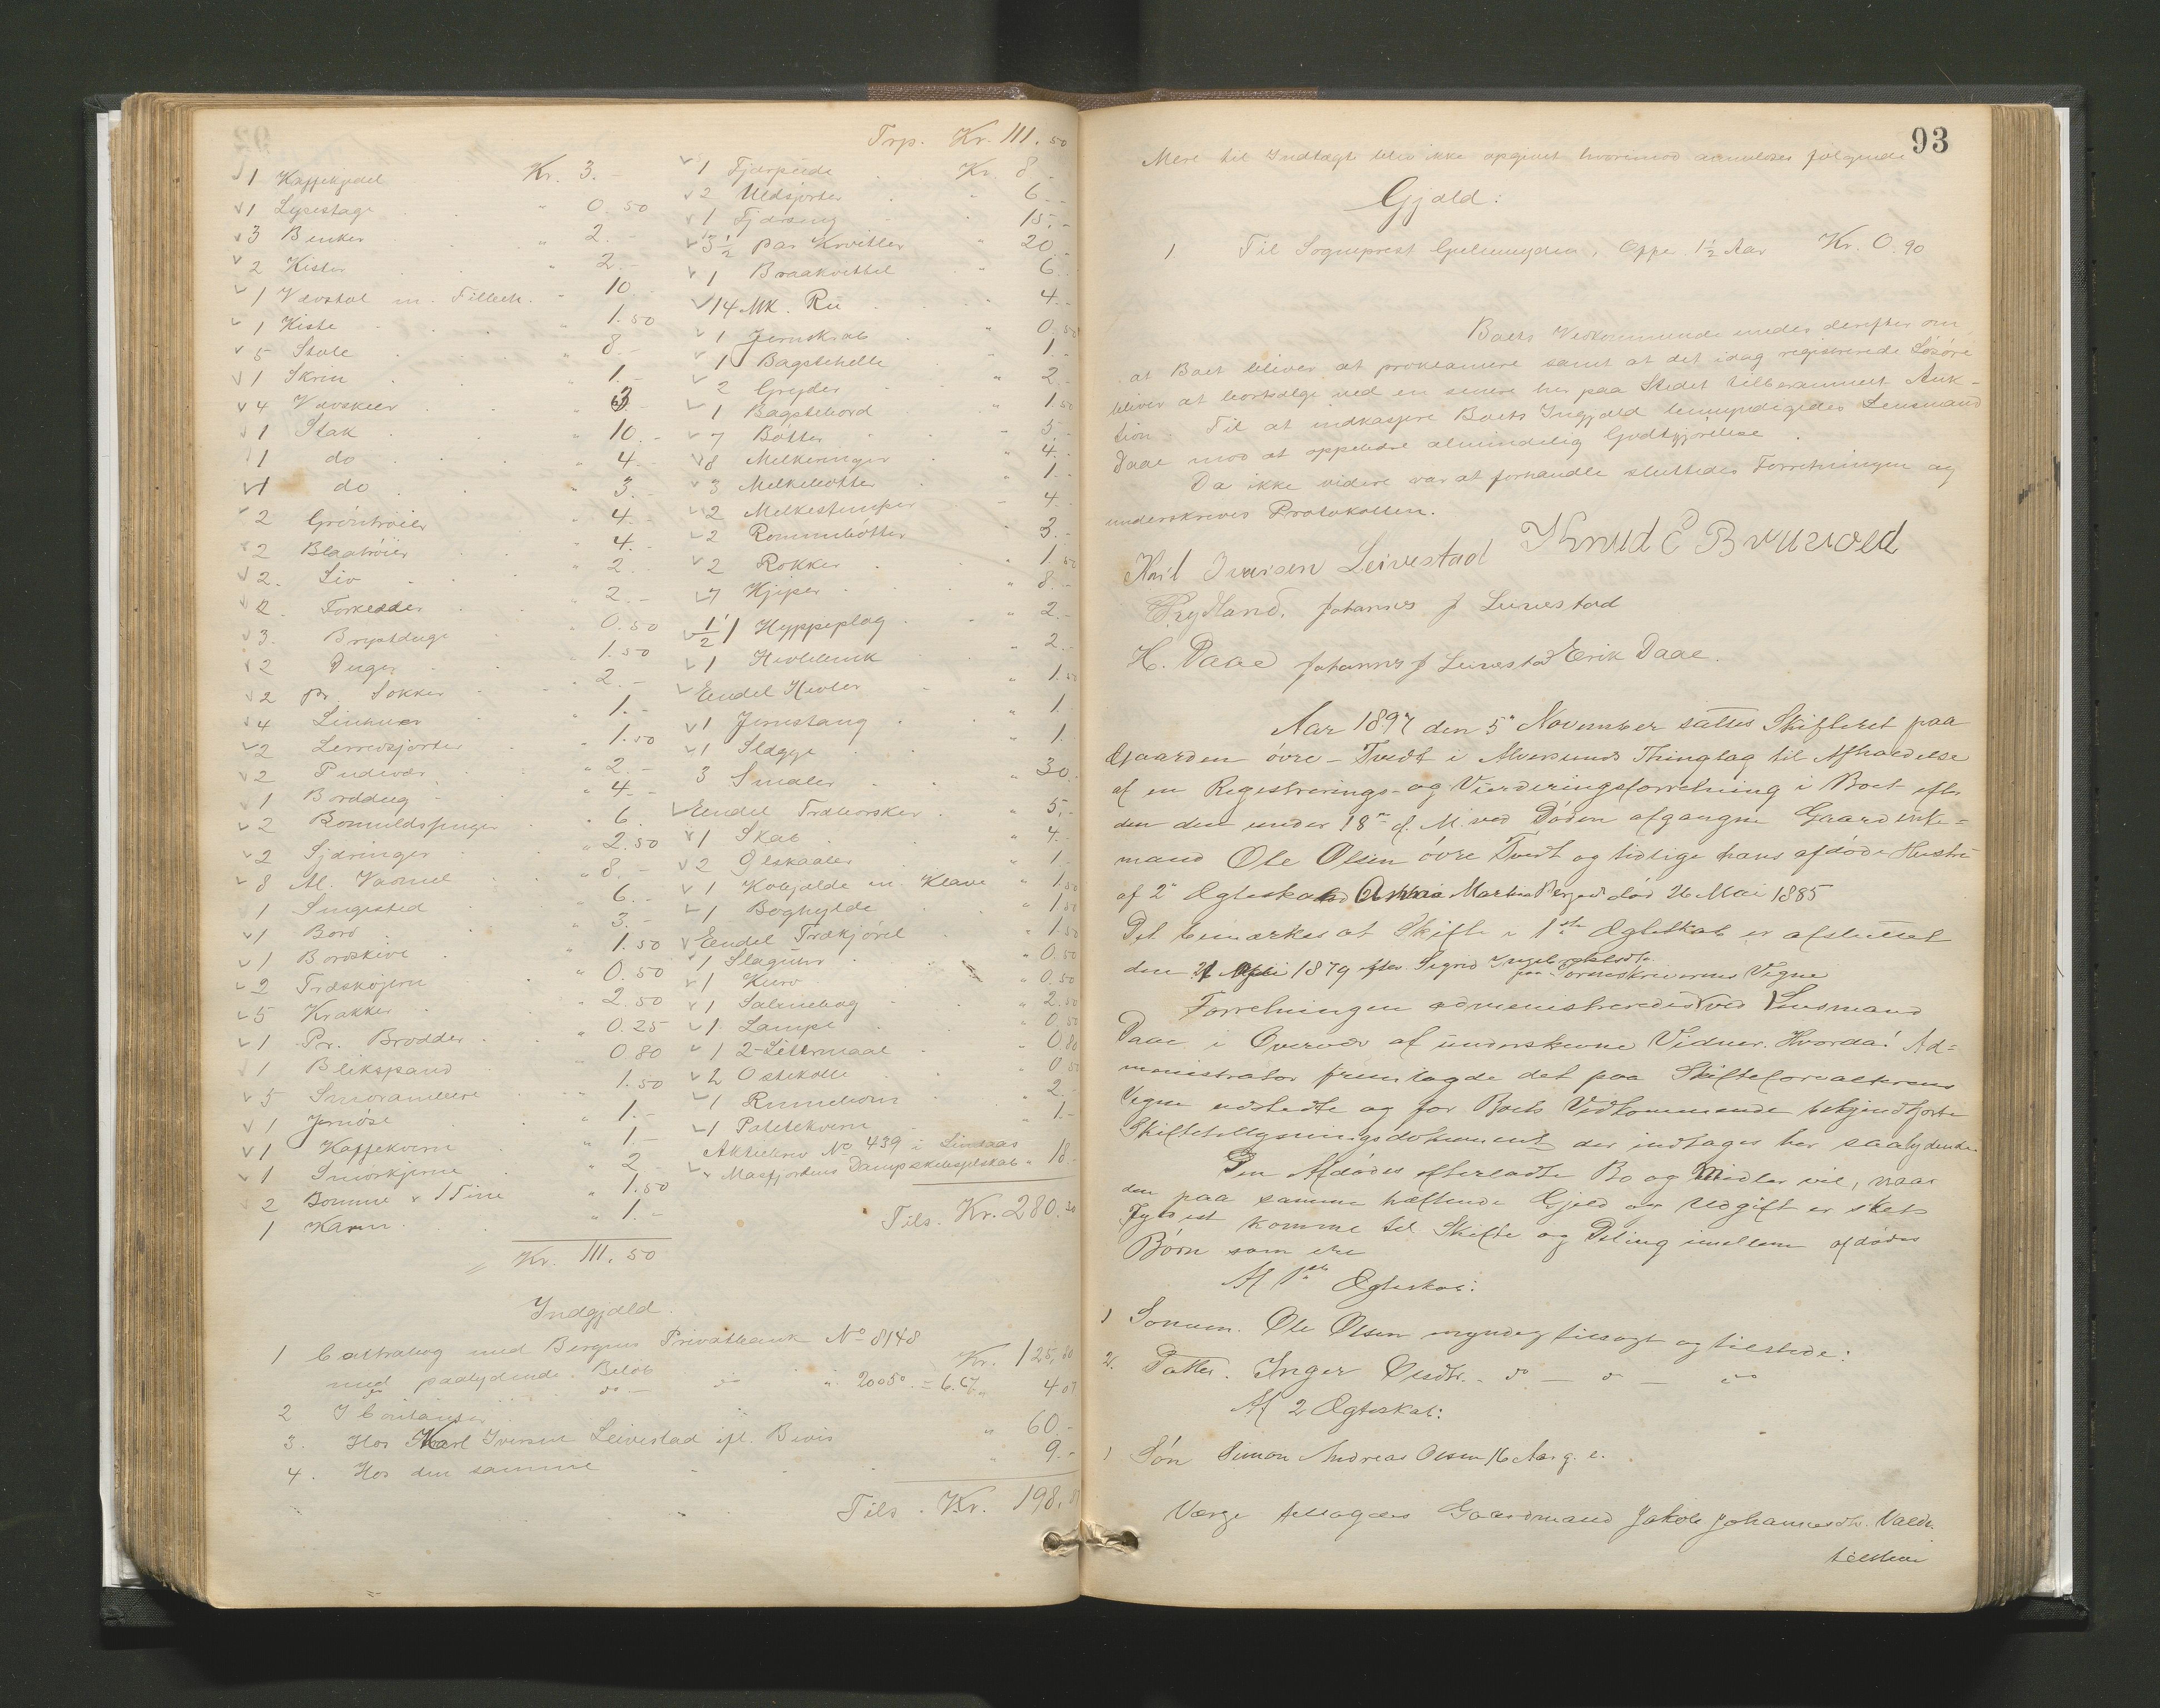 1 Kaffekjedel Kr. 3.-
1 Lysestage " 0.50
3 Benker " 2.-
2 Kister " 2.-
1 Vævstol m. Tilbeh. " 10
1 Kiste " 1.50
5 Stole " 8.-
1 Skrin 1.-
4 Vævskeer 3.-
1 Stak " 10.-
1 do " 4.-
1 do " 3.-
2 Grøntrøier " 4.-
2 Blaatrøier " 4.-
2. Liv " 2.-
2. Forklæder " 2.-
3. Brystduge " 0.50
2 Duger " 1.50
2 pr. Sokker " 2.-
4 Linhuer " 1.-
2 Lerredsjorter " 1.50
2 Pudevær " 2.-
1 Borddug " 4.-
2 Bomuldspuger " 6.
2 Sjdringer " 2.50
8 Al. Vadmel " 8.-
1 Sengested " 6.-
1 Bord " 3.-
1 Bordskive " 1.50
2 Trdskjern " 0.50
5 Krakker " 2.50
1 Pr. Brodder " 0.25
1 Blikspand 0.80
5 Smørambere " 1.50
1 Jernøse " 1.-
1 Kaffekvern " 1.-
1 Smørkjerne " 2
2 Bomme & 1 Tine " 1.50
1 Karm " 1.-
Kr. 111.50
Trp. Kr. 111.50
1 Fjærpude Kr. 8.-
2 Uldsjorter 6.-
1 Fjdrseng 15.-
3½ par Kvitler " 20.-
1 Braakvittel " 6.-
14 Mk. Ru 4.-
1 Jernskrab " 0.50
1 Bagstehelle 1.-
2 Gryder " 2.
1 Bagstebord 1.50
7 Bøtter 3.
8 Melkeringer 4.
3 Melkebøtter 1.-
2 Melkestamper 4.
2 Rømmebøtter 3.-
2 Rokker 1.50
7 Kjiper " 8.-
½ 1 Hyppeplog " 2.
1 Hevlebenk " 2.
Eendel Hevler " 1.50
1 Jernstang " 1.
1 Slægge " 1.
3 Smaler " 30.
Eendel Trdborsker " 5.-
1 Skab " 4.-
2 Ølskaaler " 1.
1 Kobjælde m. Klave " 1.50
1 Boghylde " 1.50
Eendel Trækjørel " 1.50
1 Slaguhr " 0.50
1 Kurv " 0.50
1 Salmebog " 2.50
1 Lampe " 0.50
1 2-Litermaal " 0.80
2 Ostekolle " 0.50
1 Rummehorn " 2.-
1 Potetekvern " 1.-
Aktiebrev No 439 i Lindaas
& Masfjordens Dampskibsselskab " 18.-
Tils. Kr. 280.30
Indgjæld.
1 Contrabog med Bergens Privatbank No 8148
med paalydende Beløb Kr. 125,80
" 200 50 = 6.67 " 4.07
2 I Contanter " 60.-
3. Hos Karl Iversen Leivestad ifl. Bevis " 9.-
4. Hos den samme
Tils. Kr. 198,87
93
Mere til Indtægt blev ikke opgivet hvorimod anmeldes følgende
Gjæld:
1 Til Sogneprest Gjelmuyden, Oppe. 1½ Aar Kr. 0.90
Boets Vedkommende enedes derefter om
at Boet bliver at proklamere samt at det idag registrerede Løsøre
bliver at bortsælge ved en senere her paa Stedet tilberammet Auk-
tion. Til at indkassere Boets Indgjæld bemyndigedes Lensmand
Daae mod at oppebære almindelig Godtgjørelse.
Da ikke videre var at forhandle sluttedes Forretningen og
underskreves Protokollen.
Karl Iversen Leivestad Knud E Bruvold
Frydland. Johannes J Leivestad
H. Daae Johannes J Leivestad Erik Daae.
Aar 1897 den 5te November sattes Skifteret paa
Gaarden øvre-Tvedt i Alversunds Thinglag til Afholdelse
af en Registrerings- og Vurderingsforretning i Boet efter
den den under 18de f. M. ved Døden afgangne Gaardenke-
mand Ole Olsen øvre Tvedt og tidlige hans afdøde Hustru
af 2det Ægteskab Anna Martha død 26 Mai 1885
Det bemærkes at Skifte i 1ste Ægteskab er afsluttet
den 21 1879 efter Sigrid
paa Sorenskriverens Vegne
Forretningen administreredes ved Lensmand
Daae i Overvær af underskrevne Vidner. Hvorda! Ad-
ministrator fremlagde det paa Skifteforvalterens
Vegne udstedte og for Boets Vedkommende bekjendtgjorte
Skiftetillysningsdokument der indtages her saalydende
Den Afdødes efterladte Bo og Midler vil, naar
den paa samme hæftende Gjæld og Udgift er sket
Fyldest komme til Skifte og Deling imellem afdødes
Børn som ere
Af 1ste Ægteskab:
1 Sønnen. Ole Olsen myndig tilsagt og tilstede:
2. Datter. Inger Olsdtr. - do - do - do
Af 2 Ægteskab:
1 Søn Simon Andreas Olsen 16 Aar g. l.
Værge tilsagdes Gaardmand Jakob Johannesen
tilstede